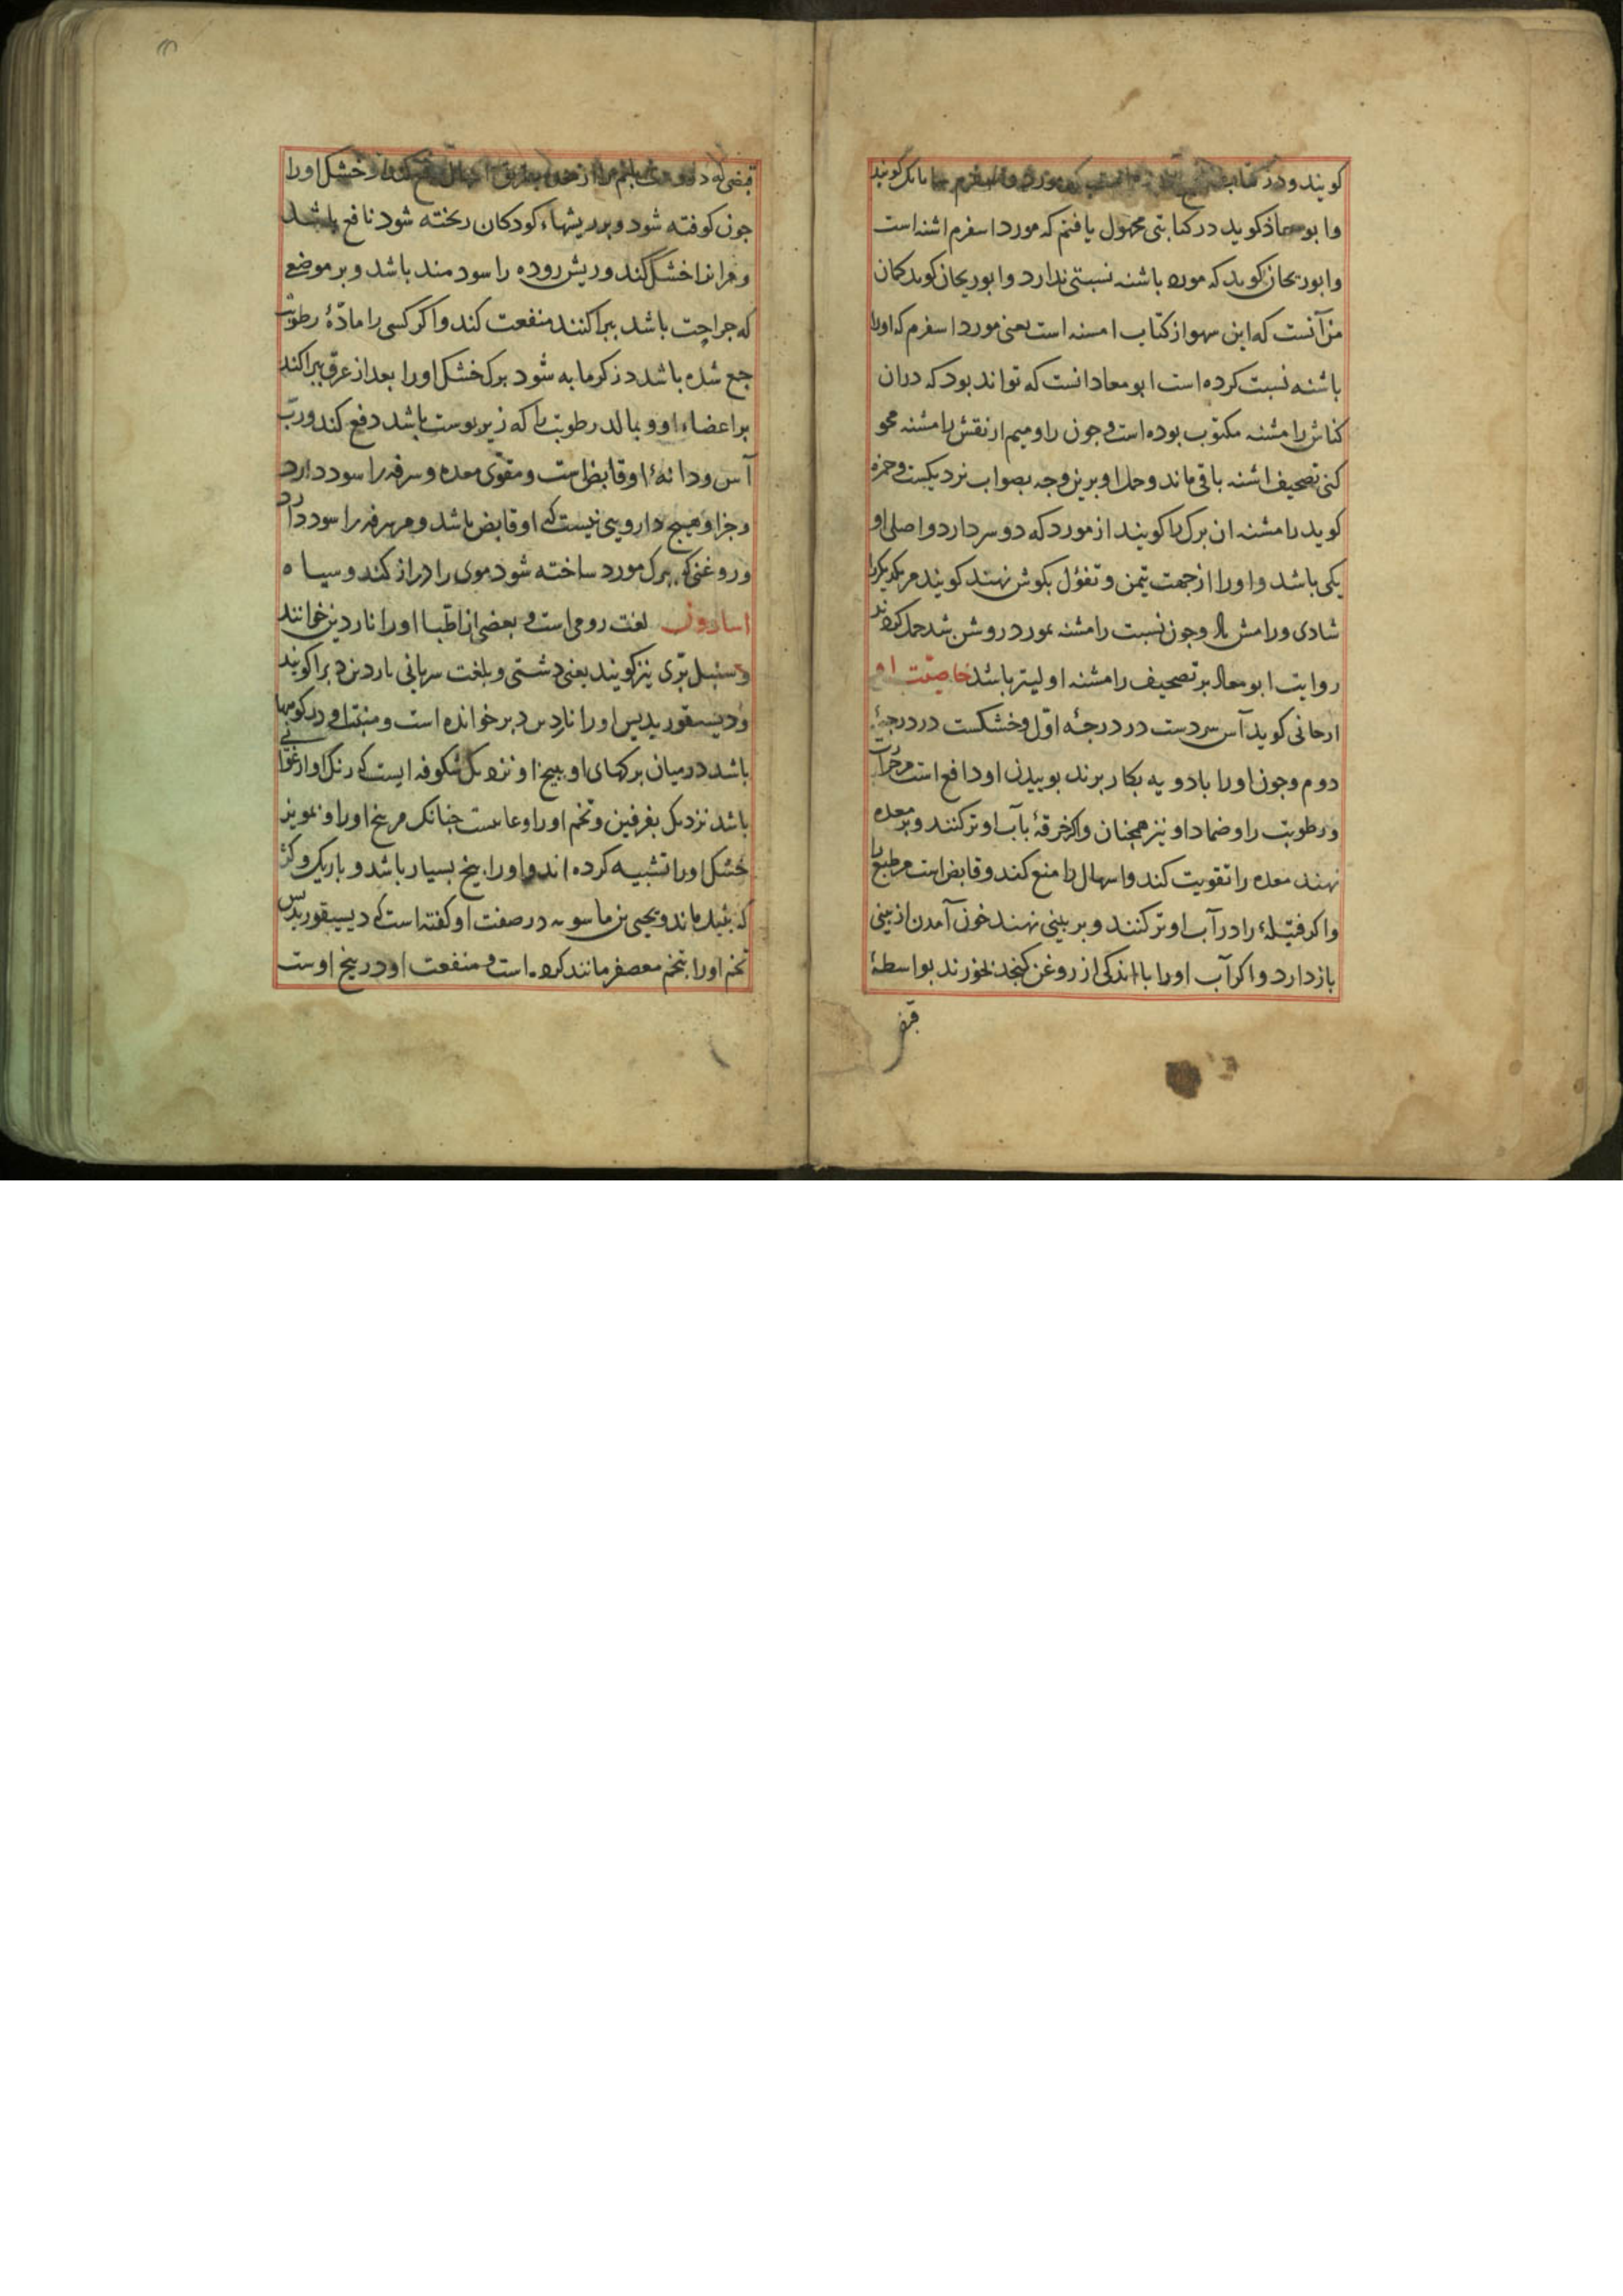 کویند و در کتاب مورد اسفرم کویند
وابو معاذ کوید در کتابتی مجهول یافتم که مورد اسفرم اشنه است
وابوریحان کوید که مورد باشنه نسبتی ندارد وابوریحان کوید کمان
من آنست که این سهو از کتاب است یعنی مورد اسفرم که اورا
باشنه نسبت کرده است ابو معاد انست که تواند بود که دران
کناش رامشنه مکتوب بوده است و جون را ومیم از نقش رامشنه محو
کنی تصحیف اشنه باقی ماند وحمل او برین وجه بصواب نزدیکست وحمزه
کوید رامشنه ان برک را کویند از مورد که دو سر دارد واصل او
یکی باشد واورا از جهت تیمن وتفؤل بکوش نهند کویند مر یکدیکررا
شادی ورامش وجون نسبت رامشنه بمورد روشن شد حمل کردند
روایت ابو معاد بر تصحیف رامشنه اولیتر باشد خاصیّت او
ارجانی کوید آس سردست در درجهٔ اوّل وخشکست در درجهٔ
دوم وجون اورا بادویه بکار برند بوییدن او دافع است مر حرارت
ورطوبت را وضماد او نیز همچنان واکر خرقهٔ بآب او تر کنند وبر معده
نهند معده را تقویت کند واسهال را منع کند وقابض است مر طبع را
واکر فتیلهٔ را در آب او تر کنند و بر بینی نهند خون آمدن از بینی
باز دارد واکر آب اورا با اندکی از روغن کنجد بخورند بواسطهٔ
قبض
قبضی که دارد بلغم را از معده بطریق اسهال خشک اورا
جون کوفته شود و بر ریشهاء کودکان ریخته شود نافع باشد
ومر انرا خشک کند وریش روده را سودمند باشد و بر موضعی
که جراحت باشد بپراکنند منفعت کند واکر کسی را مادّهٔ رطوبت
جمع شده باشد در کرمابه شود برک خشک اورا بعد از عرق بپراکند
بر اعضاء او وبمالد رطوبت را که زیر بوست باشد دفع کند ورب
آس ودانهٔ او قابض است ومقوّی معده وسرفه را سود دارد
وجز او هیچ دارویی نیست که او قابض باشد ومر سرفه را سود دارد
وروغنی که ببرک مورد ساخته شود موی را دراز کند وسیاه
اسارون لغت رومی است و بعضی از اطبّا اورا ناردین خوانند
وسنبل برّی نیز کویند یعنی دشتی وبلغت سریانی ناردین دبرا کویند
ودیسقوریدیس اورا ناردین دبر خوانده است ومنبت او در کوهها
باشد در میان برکهای او وبیخ او نزدیک شکوفه ایست که رنک او ارغوانی
باشد نزدیک بفرفین وتخم اورا وعاییست جنانک مر بیخ اورا وبمویز
خشک اورا تشبیه کرده اند واورا بیخ بسیار باشد وباریک وکژ
که بثیل ماند ویحیی بن ماسویه در صفت او کفته است که دیسیقوریدس
تخم اورا بتخم معصفر مانند کرده است و منفعت او در بیخ اوست